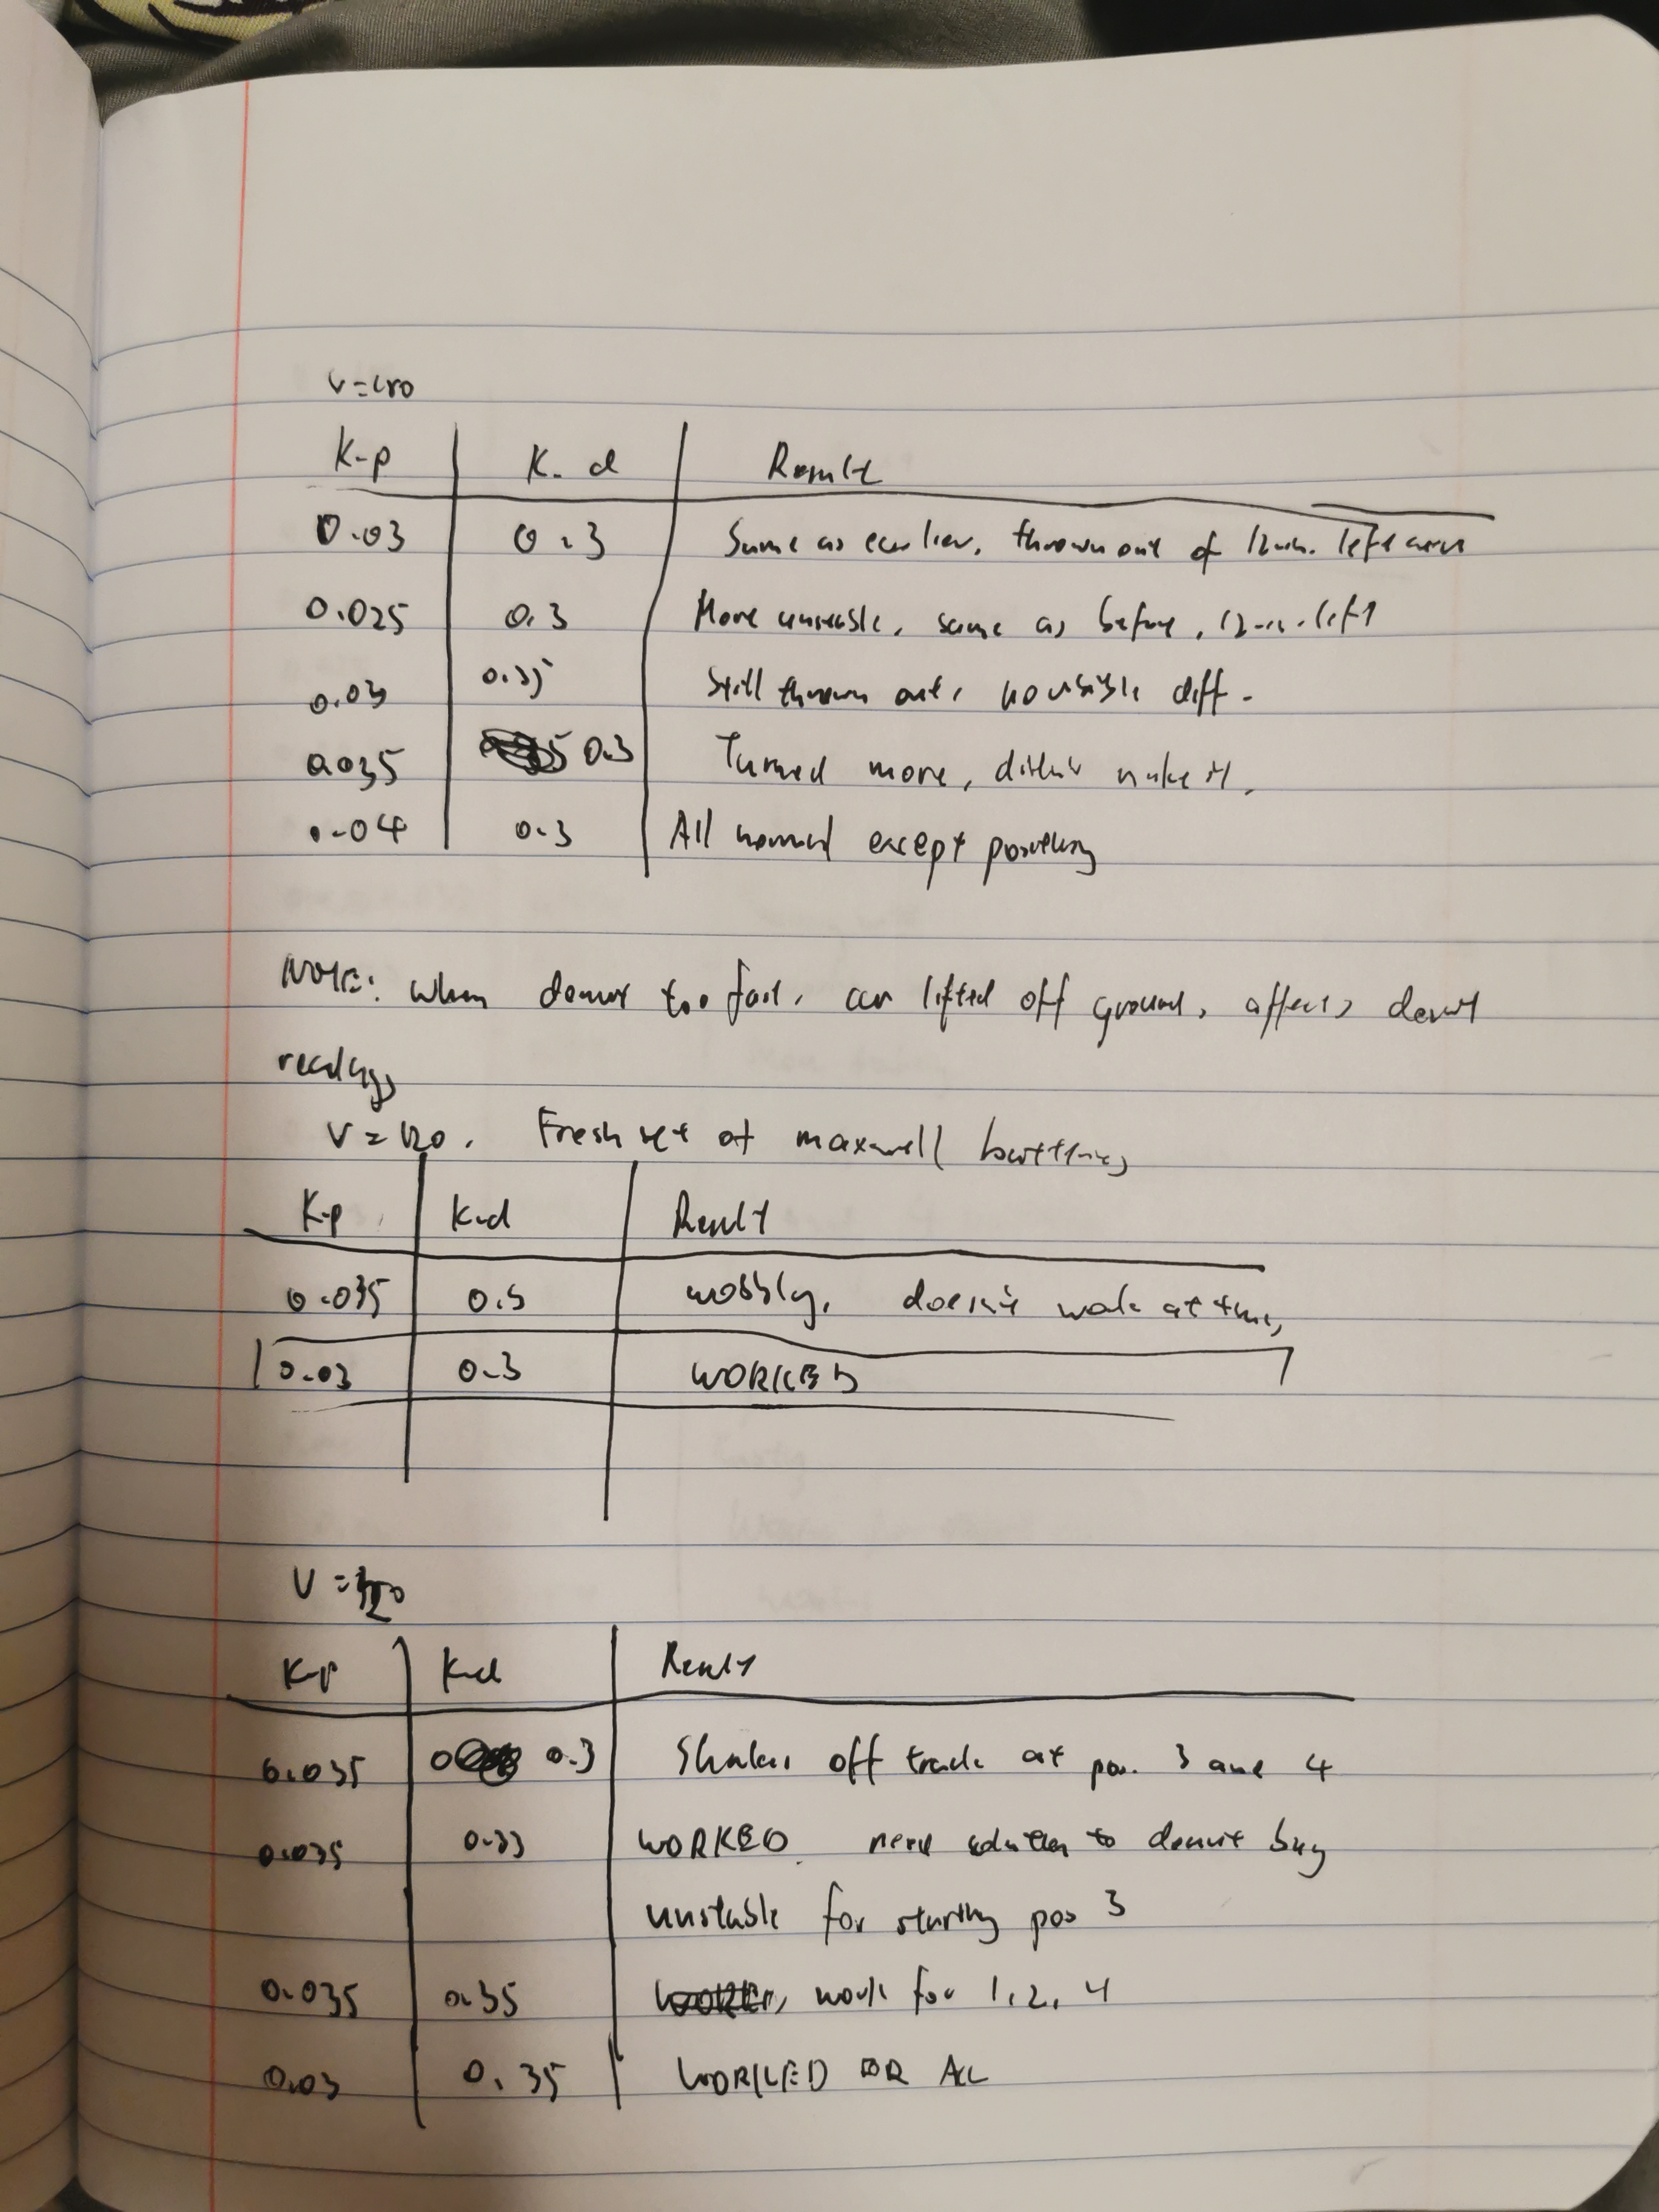 K-p K-d Result
0.03 0.3 Same as earlier, thrown out of 12-in. left
0.025 0.3 More unstable, same as before, 12-in. left
0.03 0.35 Still thrown out, no visible diff.
0.035 0.3 Turned more, didn't make it.
0.04 0.3 All worked except
NOTE: When donut too fast, car lifted off ground, affects donut
readings
V=120. Fresh set of maxwell batteries
K-p K-d Result
0.035 wobbly, doesn't work at times
0.03 0.3 WORKED
V =
K-p K-d Result
0.035 0.3 Shakes off track at pos. 3 and 4
0.035 0.33 WORKED. need solution to donut bug
unstable for starting pos 3
0.035 0.35 work for 1, 2, 4
0.03 0.35 WORKED FOR ALL